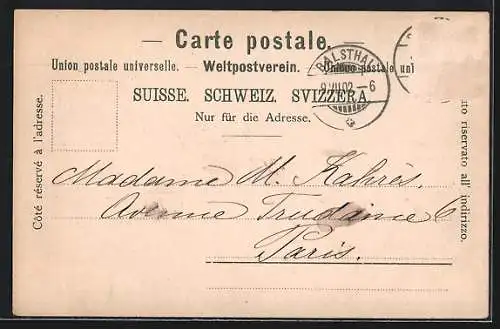 Carte postale.
Union postale universelle. — Weltpostverein. — Unione postale uni
SUISSE. SCHWEIZ. SVIZZERA.
Nur für die Adresse.
BALSTHAL
9.VII.02.–6
Côté réservé à l'adresse.
riservato all' indirizzo.
Madame M. Kahrès.
Avenue Trudaine 6
Paris.